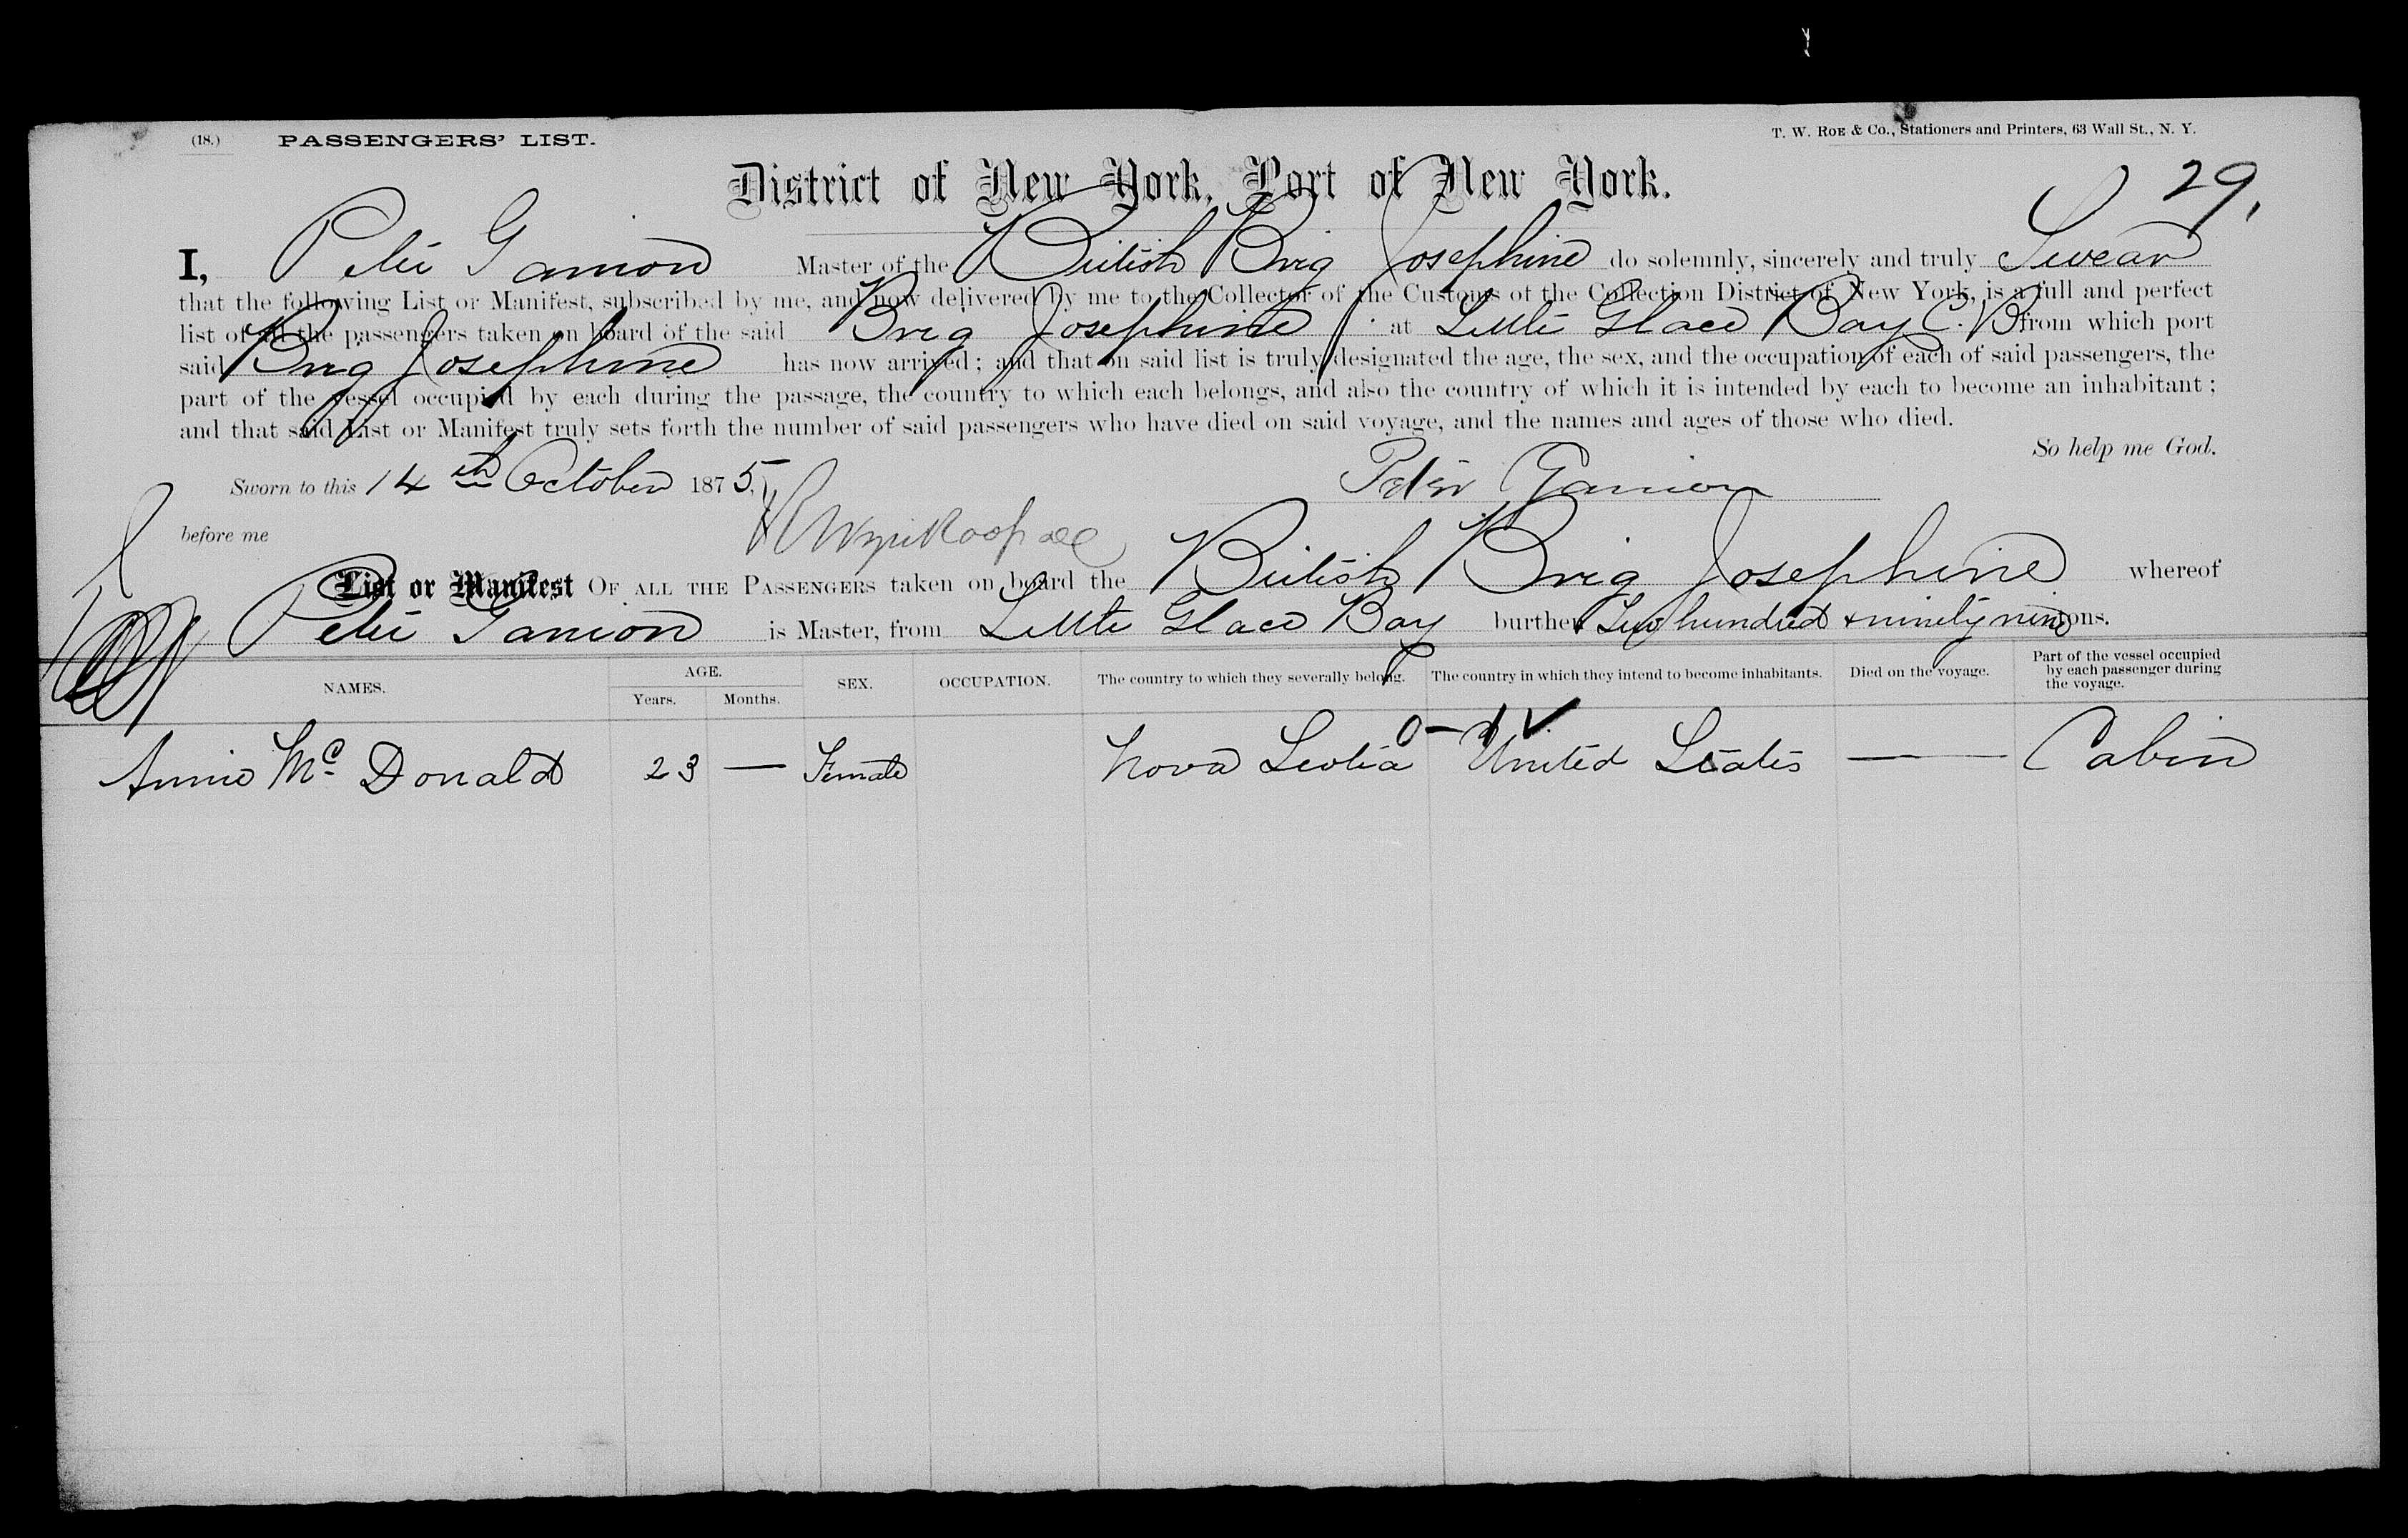 (18.) PASSENGERS' LIST. T. W. ROE & Co., Stationers and Printers, 63 Wall St., N. Y.
District of New York, Port of New York. 29.
I, Peter Gamion Master of the British Brig Josephine do solemnly, sincerely and truly Swear
that the following List or Manifest, subscribed by me, and now delivered by me to the Collector of the Customs of the Collection District of New York, is a full and perfect
list of all the passengers taken on board of the said Brig Josephine at Little Glace Bay C. B. from which port
said Brig Josephine has now arrived; and that on said list is truly designated the age, the sex, and the occupation of each of said passengers, the
part of the vessel occupied by each during the passage, the country to which each belongs, and also the country of which it is intended by each to become an inhabitant;
and that said List or Manifest truly sets forth the number of said passengers who have died on said voyage, and the names and ages of those who died.
So help me God.
Sworn to this 14th October 1875, Peter Gamion
before me
List or Manifest OF ALL THE PASSENGERS taken on board the British Brig Josephine whereof
Peter Gamion is Master, from Little Glace Bay burthen Two hundred & ninety nine tons.
NAMES. AGE. Years. Months. SEX. OCCUPATION. The country to which they severally belong. The country in which they intend to become inhabitants. Died on the voyage. Part of the vessel occupied by each passenger during the voyage.
Annie McDonald 23 — Female Nova Scotia United States — Cabin